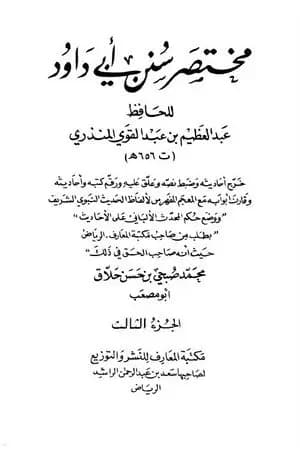 مختصر سنن أبي داود
للحافظ
عبد العظيم بن عبد القوي المنذري
(ت ٦٥٦ هـ)
خرّج أحاديثه وضبط نصه وعلّق عليه ورقّم كتبه وأحاديثه
وقارن أبوابه مع المعجم المفهرس لألفاظ الحديث النبوي الشريف
"ووضع حكم المحدث الألباني على الأحاديث"
"بطلب من صاحب مكتبة المعارف. الرياض
حيث أنه صاحب الحق في ذلك"
محمد صبحي بن حسن حلاق
أبو مصعب
الجزء الثالث
مكتبة المعارف للنشر والتوزيع
لصاحبها سعد بن عبد الرحمن الراشد
الرياض